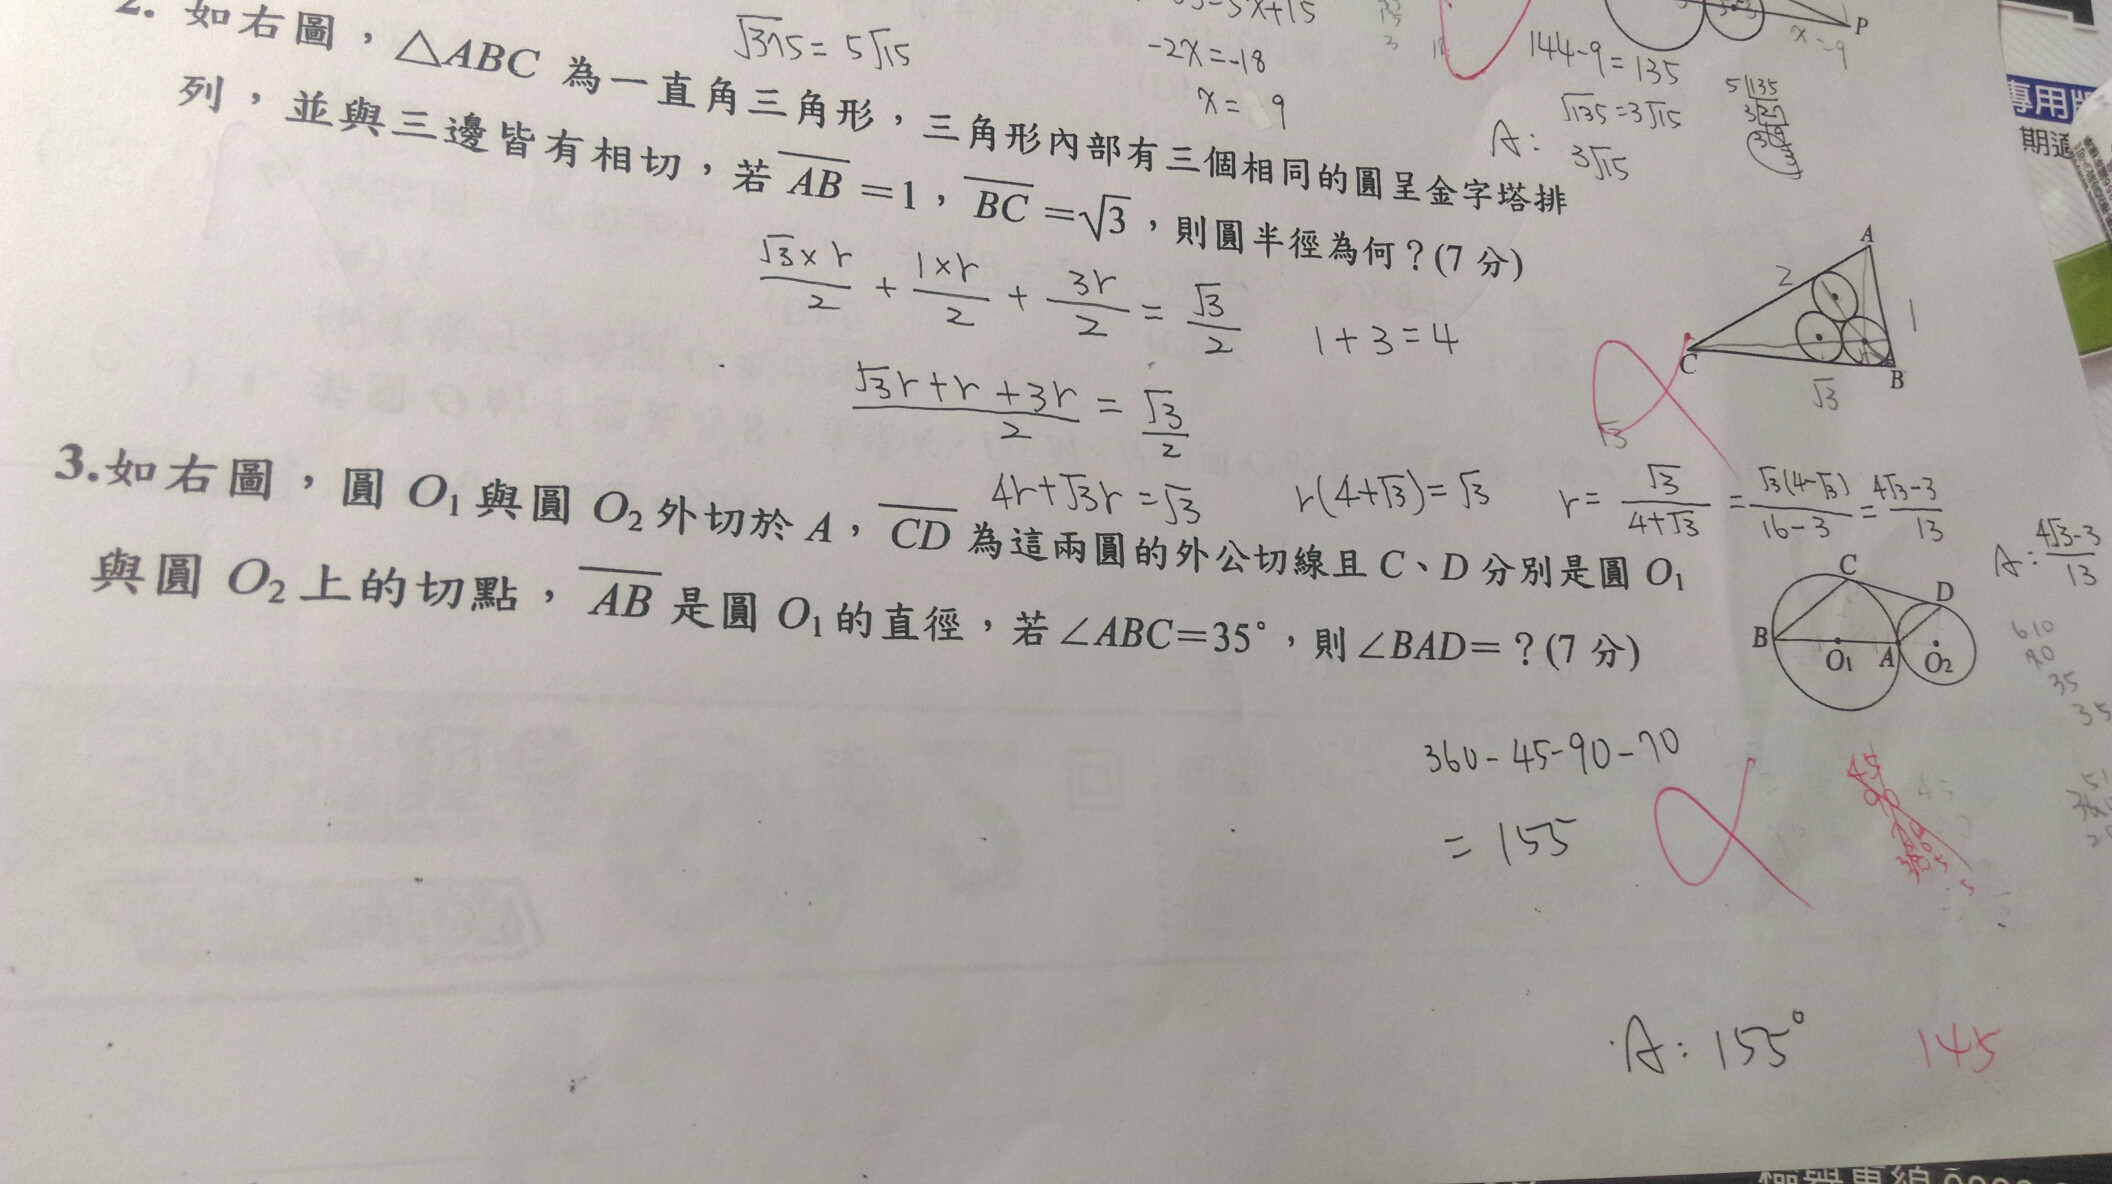 2. 如右圖，△ABC 為一直角三角形，三角形內部有三個相同的圓呈金字塔排
列，並與三邊皆有相切，若 AB=1，BC=√3，則圓半徑為何？(7 分)
√375 = 5√15
-2X=-18
X= 9
144-9=135
√135=3√15
A: 3√15
5 135
3 27
P
x=9
專用
期
A
2
1
C
B
√3
√3×r/2 + 1×r/2 + 3r/2 = √3/2
1+3=4
(√3r+r+3r)/2 = √3/2
√3
4r+√3r=√3
r(4+√3)=√3
r= √3/(4+√3) = √3(4-√3)/(16-3) = (4√3-3)/13
A: (4√3-3)/13
3.如右圖，圓 O1 與圓 O2 外切於 A，CD 為這兩圓的外公切線且 C、D 分別是圓 O1
與圓 O2 上的切點，AB 是圓 O1 的直徑，若∠ABC=35°，則∠BAD=？(7 分)
C
D
B
O1
A
O2
35
360-45-90-70
= 155
45
A: 155°
145